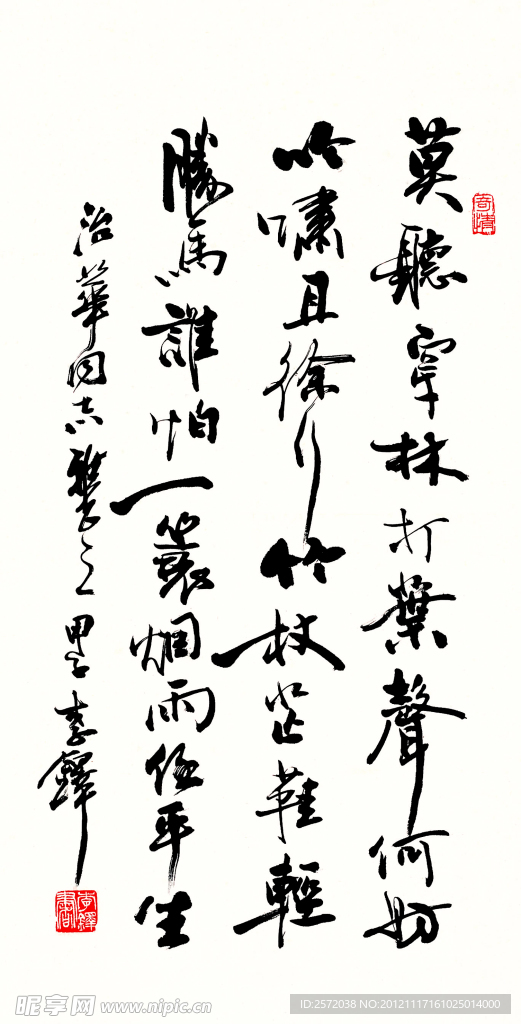 莫聽穿林打葉聲何妨
吟嘯且徐行竹杖芒鞋輕
勝馬誰怕一蓑烟雨任平生
治華同志雅正之 甲子 李鐸
寄情
昵享网 www.nipic.cn
ID:2572038 NO:20121117161025014000